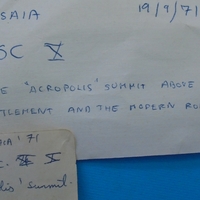 SAIA 19/9/71
SC X
E "ACROPOLIS" SUMMIT ABOVE
TLEMENT AND THE MODERN RO
AIA' 71
C. X
lis' summit.